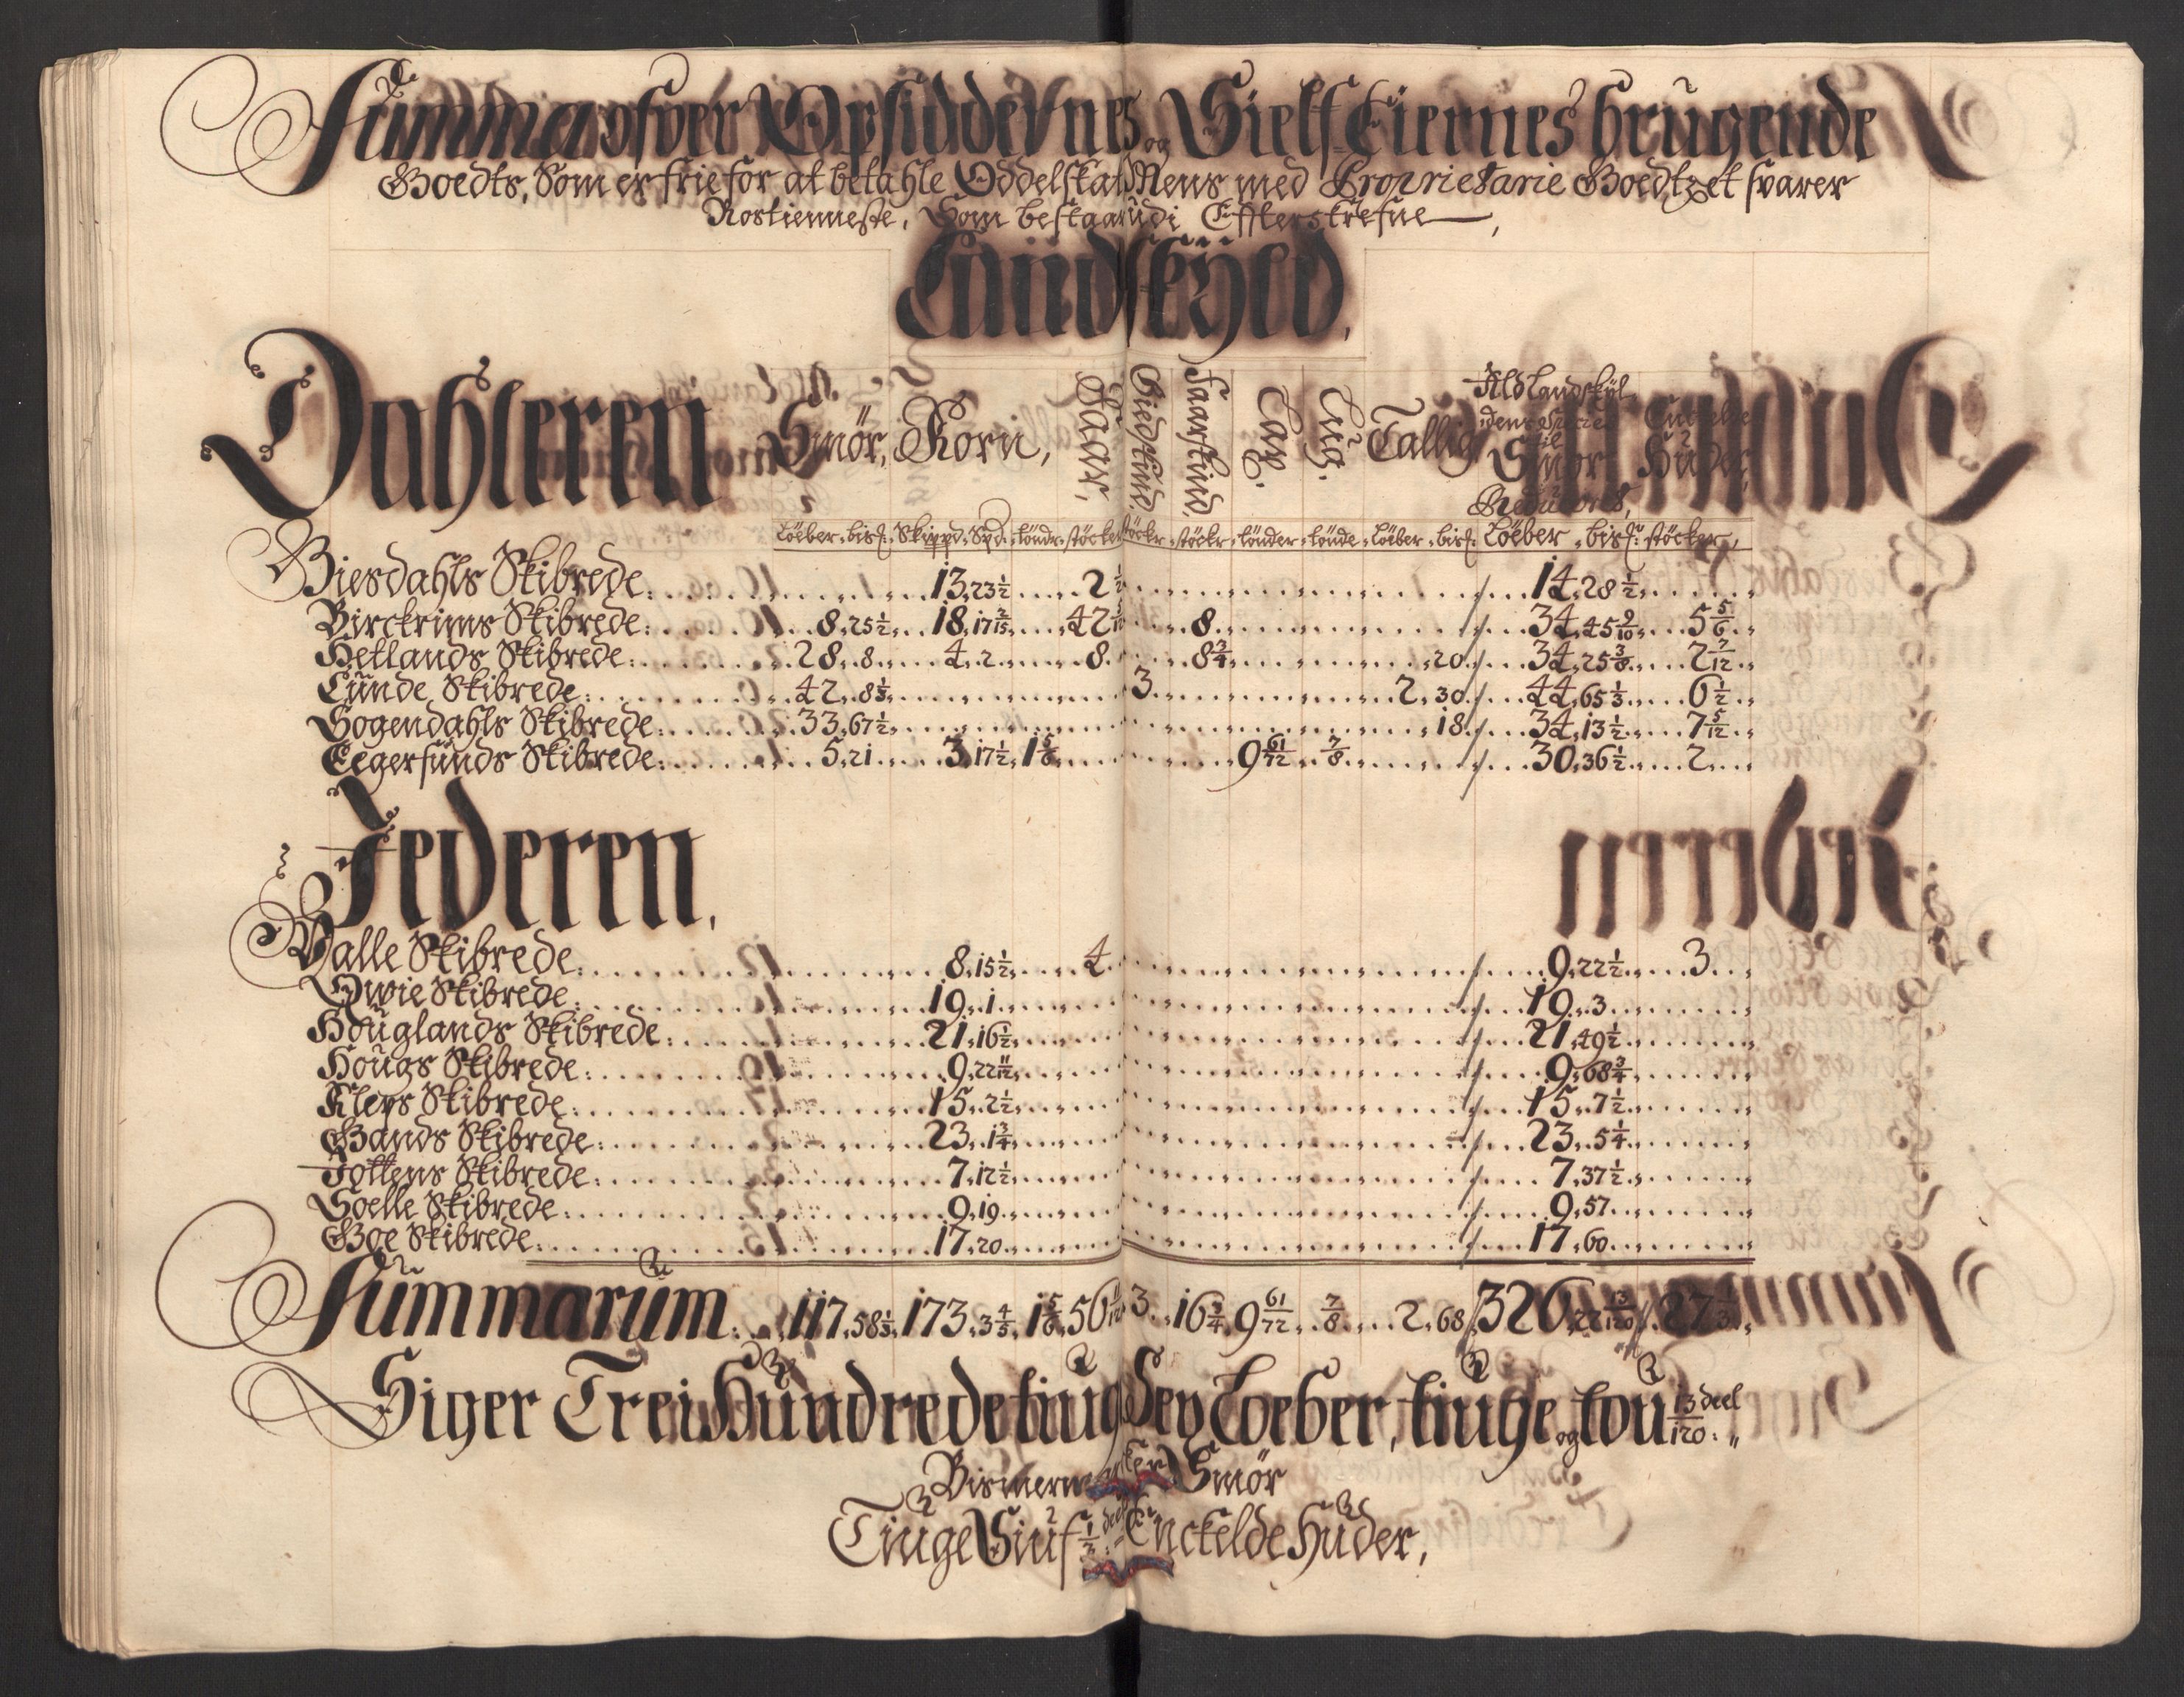 Summa ofver Opsiddernes og Sielf Eiernes brugende
Goedts, Som er frie for at betahle Oddelskat Mens med Proprietarie Goedtzet svarer
Rostienneste, Som bestaar udi Effterskrefne
Landskÿld,
Dahleren Smör, Korn, Faar, Giedskind. Faarskind. Lax. Tallig Ald Landskÿl
dens Smör Huder,
Reduceres,
Löeber. bisf. Skippd. Spd. tönder stöcker stöckr stöckr tönder tönde Löeber. bisf. Löeber. bisf. stöcker
Biesdahls Skibrede: 13. 23½ 2½ / 14. 28½
Birckrims Skibrede: 8. 25½ 18. 17 2/15 42 8 / 34. 45 9/10 5 5/6
Hetlands Skibrede: 28. 8 4. 2 8 8¾ 20 / 34. 25⅜ 2 7/12
Lunde Skibrede: 42. 8⅓ 3 2. 30 / 44. 65⅓ 6½
Sogendahls Skibrede: 33. 67½ 18 / 34. 13½ 7 5/12
Eegersunds Skibrede: 5. 21 3. 17½ 1⅝ 9 61/72 ⅞ / 30. 36½ 2
Jederen,
Valle Skibrede: 8. 15½ 4 / 9. 22½ 3
Qwie Skibrede: 19. 1 / 19. 3
Houglands Skibrede: 21. 16½ / 21. 49½
Hougs Skibrede: 9. 22 11/12 / 9. 68¾
Kleps Skibrede: 15. 2½ / 15. 7½
Gands Skibrede: 23. 1¾ / 23. 5¼
Jottens Skibrede: 7. 12½ / 7. 37½
Soelle Skibrede: 9. 19 / 9. 57
Goe Skibrede: 17. 20 / 17. 60
Summarum: 117. 58⅓ 173. 3⅘ 1⅝ 56 3 16¾ 9 61/72 ⅞ 2. 68 / 326. 22 13/120 / 27⅓
Siger Trei Hundrede tiug Sex Löeber, tiuge og tou 13/120 deel
Bismermarker Smör
Tiuge Siuf deel Enckelde Huder,